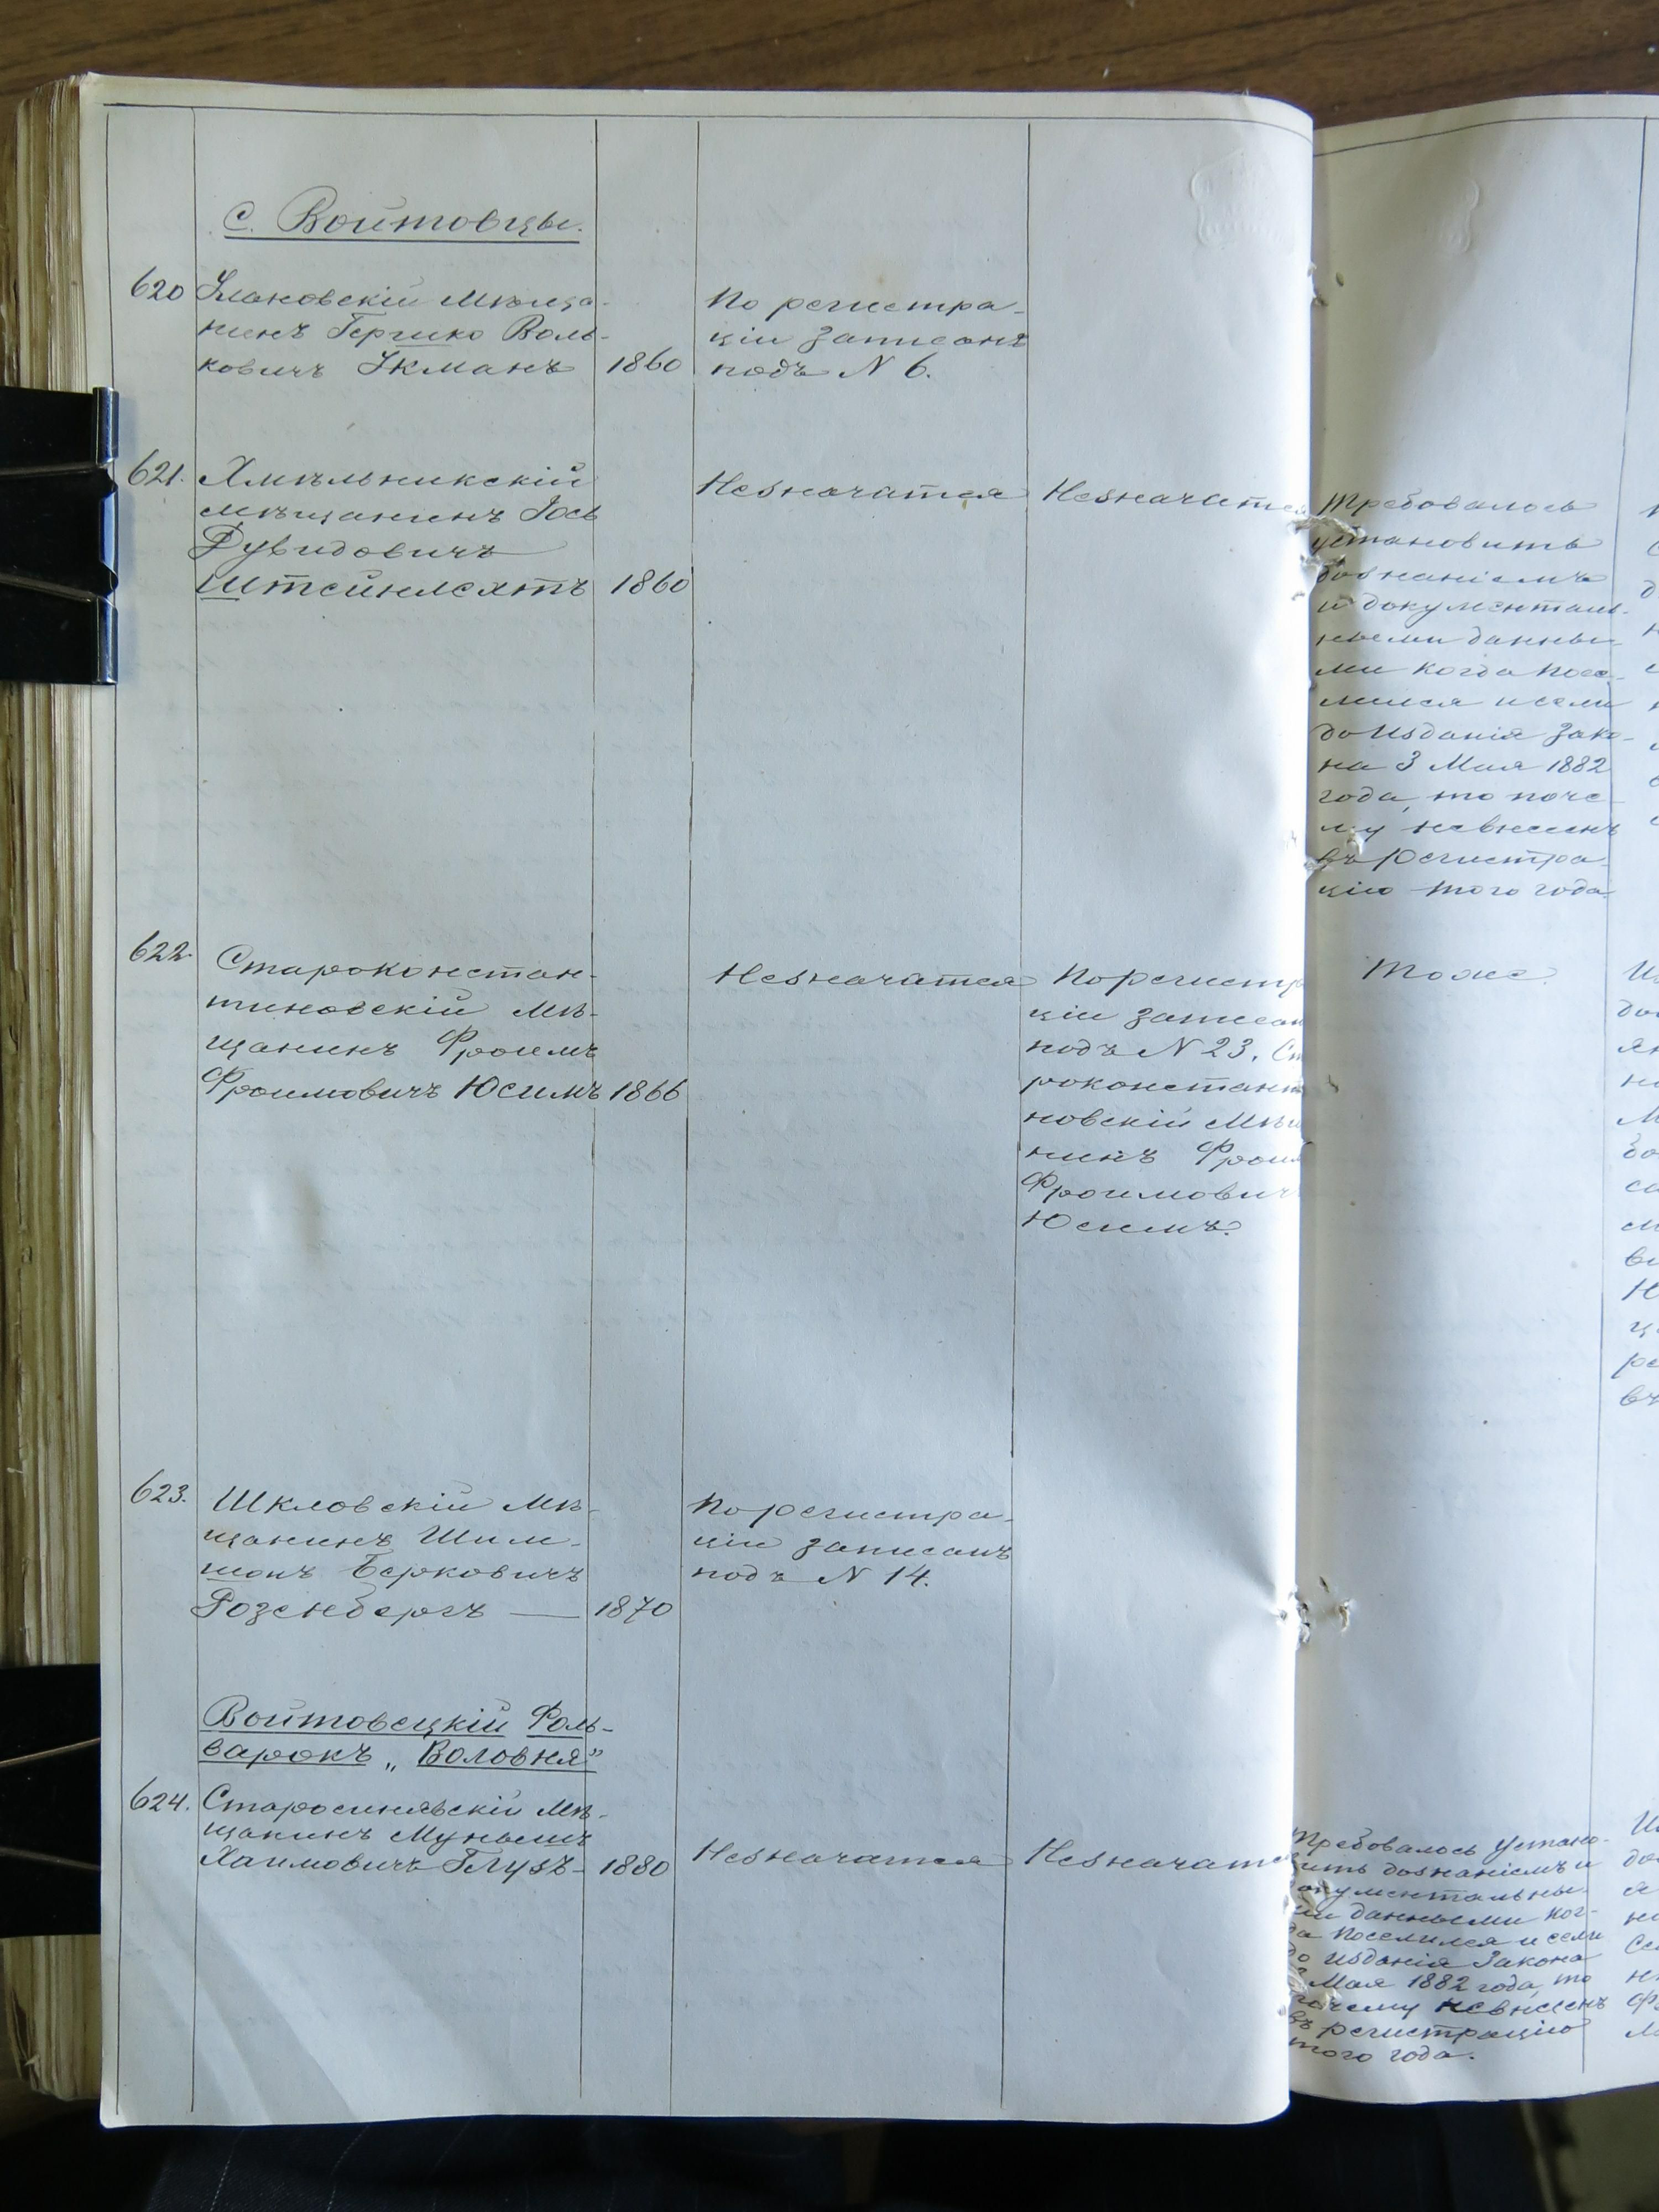 с. Войтовцы.
620 Улановскій Мѣща-
нинъ Гершко Воль-
ковичъ Укманъ 1860
По регистра-
ціи записанъ
подъ N 6.
621. Хмѣльникскій
мѣщанинъ Іось
Дувидовичъ
Штейнлехтъ 1860
Незначатся
Незначатся
Требовалось
установить
дознаніемъ
и документаль-
ными данны-
ми когда посе-
лился и если
до изданія Зако-
на 3 Мая 1882
года, то поче-
му невнесенъ
въ регистра-
цію того года
622. Староконстан-
тиновскій мѣ-
щанинъ Фроимъ
Фроимовичъ Юсимъ 1866
Незначатся
По регистр
ціи записан
подъ N 23. Ст
роконстант
новскій Мѣщ
нинъ Фроим
Фроимович
Юсимъ.
Тоже
623. Шкловскій Мѣ-
щанинъ Шим-
шонъ Берковичъ
Розенбергъ — 1870
По регистра-
ціи записанъ
подъ N 14.
Войтовецкій Фоль-
варокъ „Воловня"
624. Старосинявскій Мѣ-
щанинъ Мунышъ
Хаимовичъ Глузъ - 1880
Незначатся
Незначатс
Требовалось устано-
вить дознаніемъ и
документальны-
ми данными ког-
да поселился и если
до изданія Закона
3 Мая 1882 года, то
почему невнесенъ
въ регистрацію
того года.